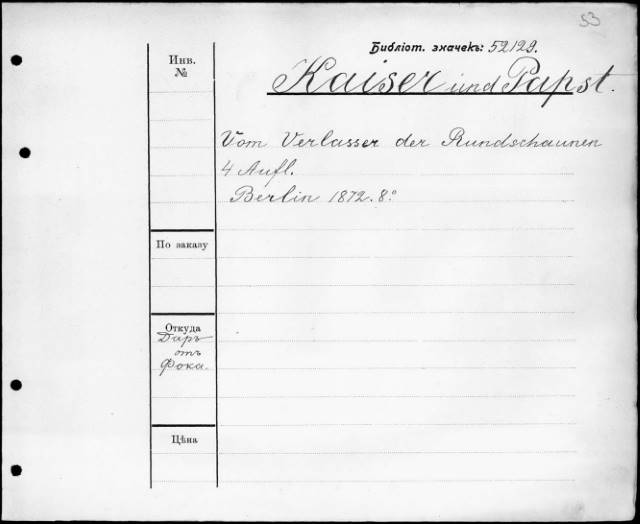 53
Библіот. значекъ: 52129.
Kaiser und Papst.
Инв.
№
Vom Verlasser der Rundschaunen
4 Aufl.
Berlin 1872. 8º
По заказу
Откуда
Даръ
отъ
Фока.
Цѣна